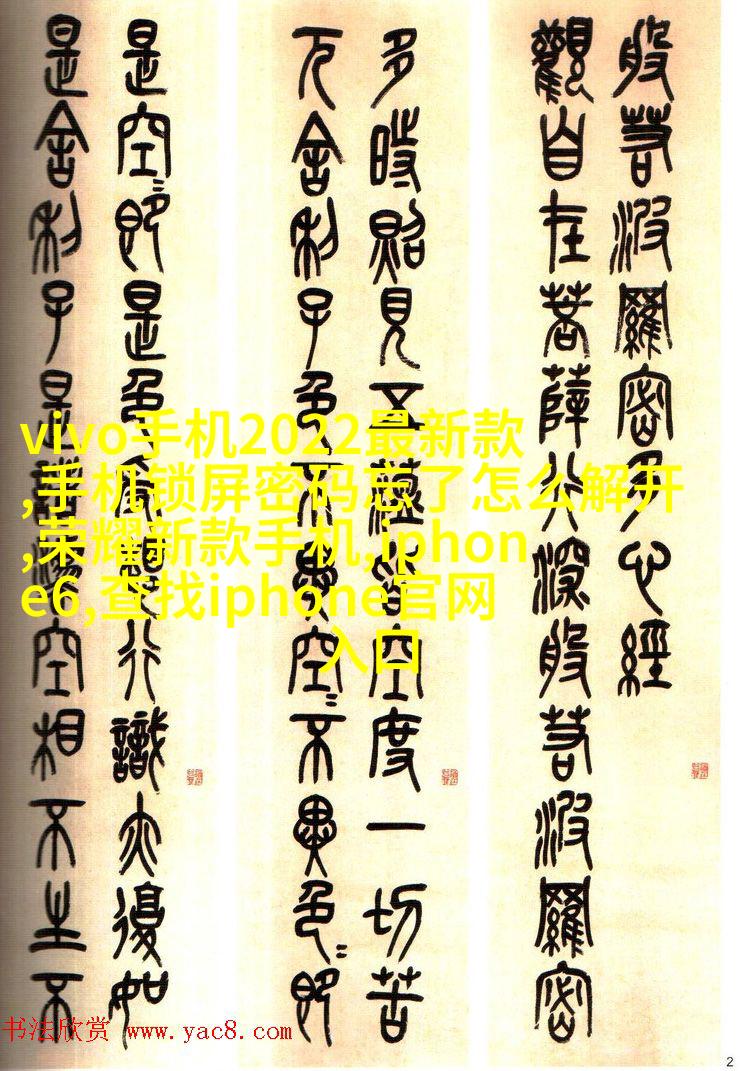 般若波羅密多心經
觀自在菩薩行深般若波羅密
多時照見五蘊皆空度一切苦
厄舍利子色不異空〻不異色〻即
是空〻即是色受想行識亦復如
是舍利子是諸法空相不生不
vivo手机2022最新款
,手机锁屏密码忘了怎么解开
,荣耀新款手机,iphon
e6,查找iphone官网
入口
书法欣赏 www.yac8.com
2